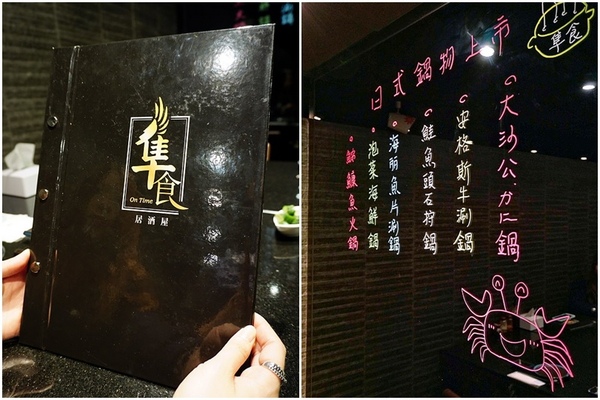 隼食
On Time
居酒屋
隼食
日式鍋物上市
大沙公.カニ鍋
安格斯牛涮鍋
鮭魚頭石狩鍋
海鱺魚片涮鍋
泡菜海鮮鍋
鮟鱇魚火鍋